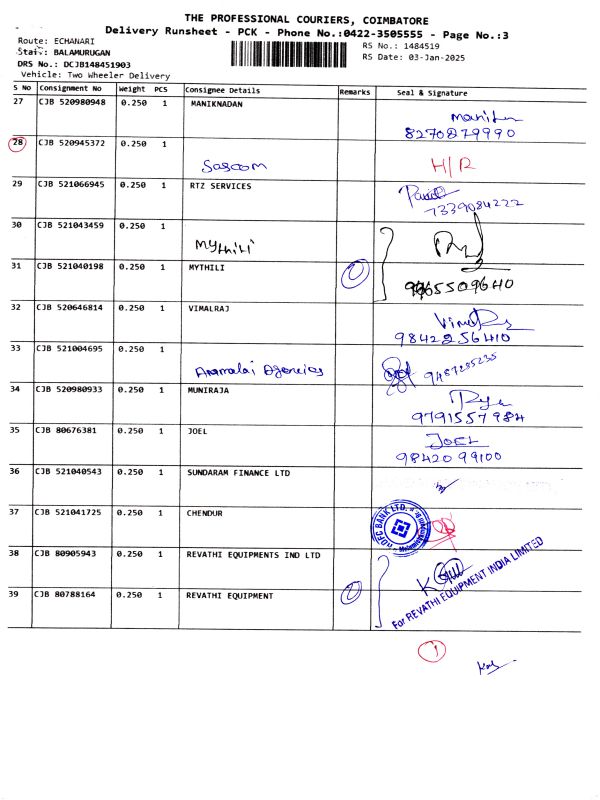 THE PROFESSIONAL COURIERS, COIMBATORE
Delivery Runsheet - PCK - Phone No.:0422-3505555 - Page No.:3
Route: ECHANARI
RS No.: 1484519
Staff: BALAMURUGAN
RS Date: 03-Jan-2025
DRS No.: DCJB148451903
Vehicle: Two Wheeler Delivery
S No Consignment No Weight PCS Consignee Details Remarks Seal & Signature
27 CJB 520980948 0.250 1 MANIKNADAN
8270879990
28 CJB 520945372 0.250 1
Sasoom H/R
29 CJB 521066945 0.250 1 RTZ SERVICES
7339084222
30 CJB 521043459 0.250 1
Mythili
31 CJB 521040198 0.250 1 MYTHILI
9965509640
32 CJB 520646814 0.250 1 VIMALRAJ
9842256410
33 CJB 521004695 0.250 1
Annamalai Agencies 9487285235
34 CJB 520980933 0.250 1 MUNIRAJA
9791557984
35 CJB 80676381 0.250 1 JOEL JOEL
9842099100
36 CJB 521040543 0.250 1 SUNDARAM FINANCE LTD
37 CJB 521041725 0.250 1 CHENDUR HDFC BANK LTD.
38 CJB 80905943 0.250 1 REVATHI EQUIPMENTS IND LTD
39 CJB 80788164 0.250 1 REVATHI EQUIPMENT
For REVATHI EQUIPMENT INDIA LIMITED
1